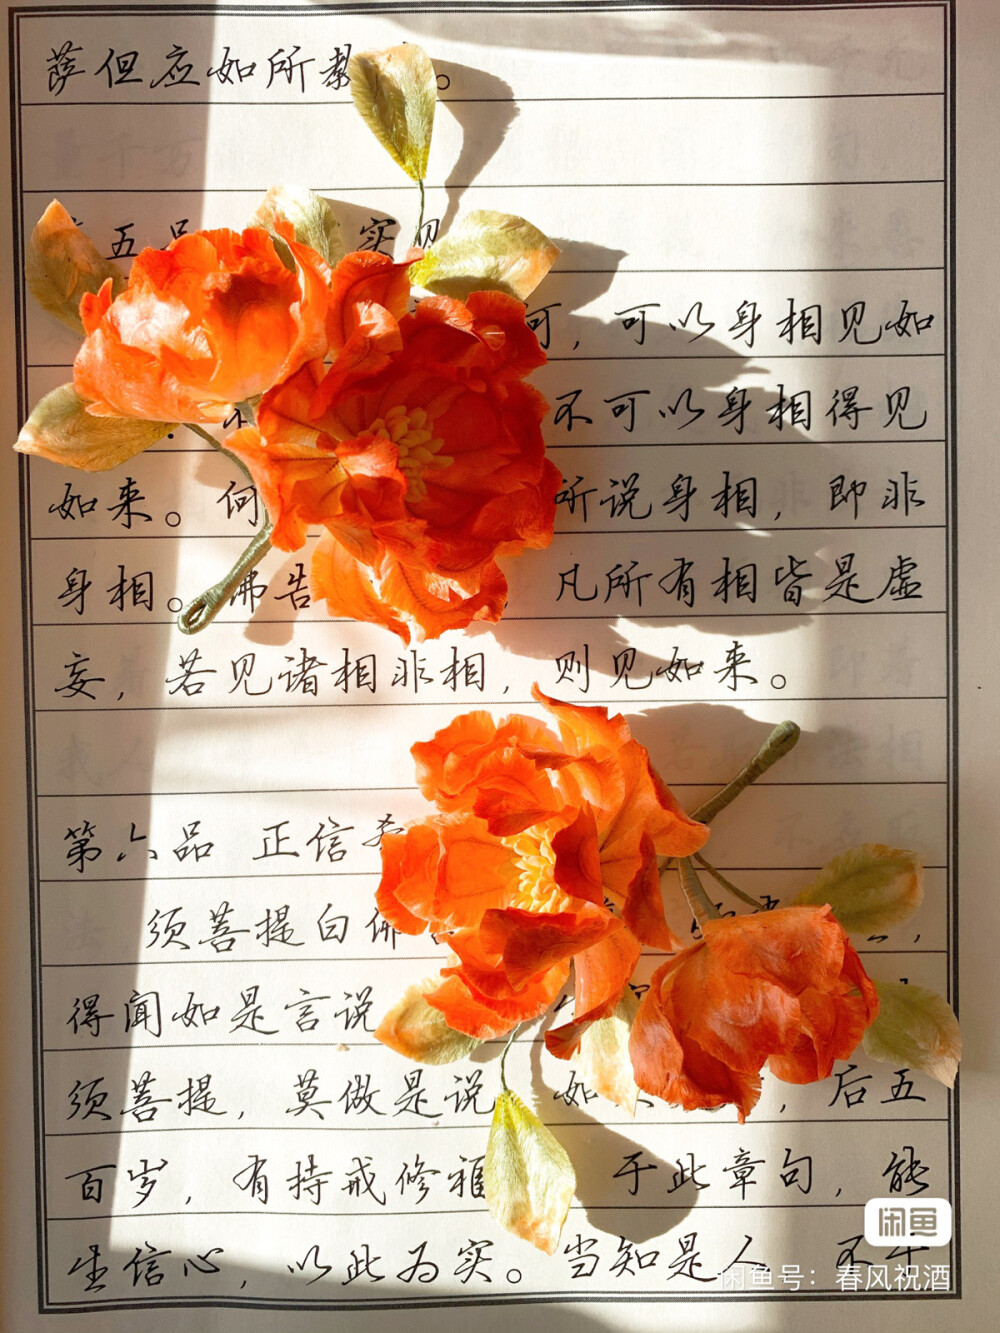 萨但应如所教。
五品 实见
何，可以身相见如
不可以身相得见
如来。何 所说身相，即非
身相。佛告 ，凡所有相皆是虚
妄，若见诸相非相，则见如来。
第六品 正信希
须菩提白佛 ，
得闻如是言说
须菩提，莫做是说 如 ，后五
百岁，有持戒修福 于此章句，能
生信心，以此为实。当知是人 不于
闲鱼
闲鱼号：春风祝酒